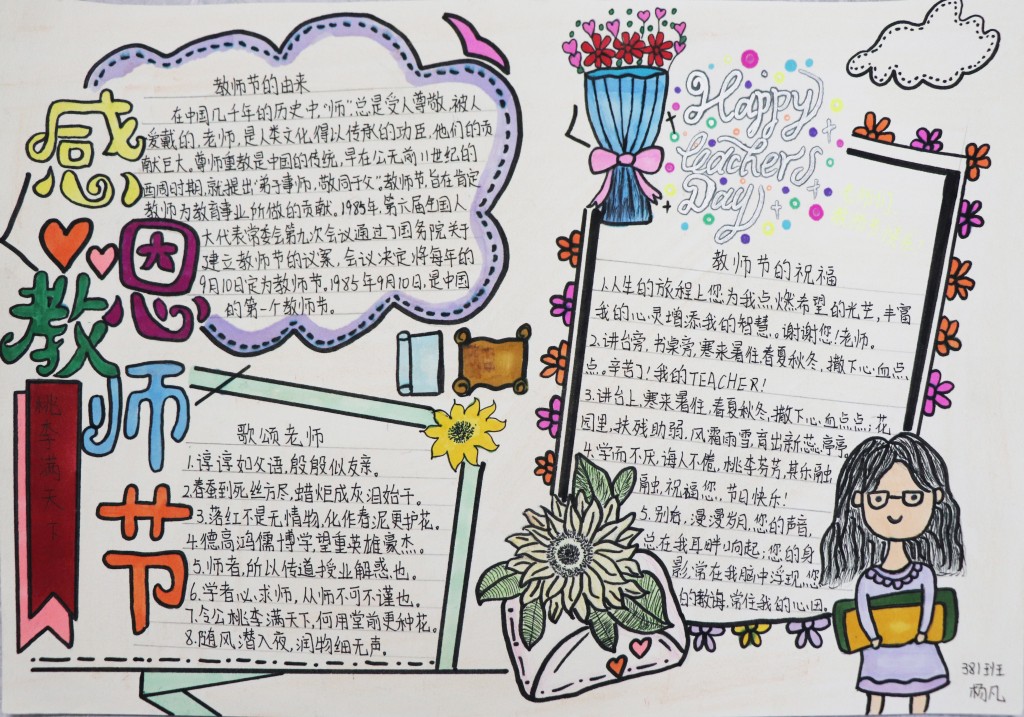 感恩教师节
桃李满天下
教师节的由来
在中国几千年的历史中,“师”总是受人尊敬,被人
爱戴的,老师,是人类文化得以传承的功臣,他们的贡
献巨大。尊师重教是中国的传统,早在公元前11世纪的
西周时期,就提出“弟子事师,敬同于父”,教师节,旨在肯定
教师为教育事业所做的贡献。1985年,第六届全国人
大代表常委会第九次会议通过了国务院关于
建立教师节的议案,会议决定将每年的
9月10日定为教师节,1985年9月10日,是中国
的第一个教师节。
歌颂老师
1.谆谆如父语,殷殷似友亲。
2.春蚕到死丝方尽,蜡炬成灰泪始干。
3.落红不是无情物,化作春泥更护花。
4.德高鸿儒博学,望重英雄豪杰。
5.师者,所以传道授业解惑也。
6.学者必求师,从师不可不谨也。
7.令公桃李满天下,何用堂前更种花。
8.随风潜入夜,润物细无声。
Happy
teachers
Day
教师节的祝福
1.人生的旅程上,您为我点燃希望的光芒,丰富
我的心灵,增添我的智慧。谢谢您!老师。
2.讲台旁,书桌旁,寒来暑往,春夏秋冬,撒下心血点
点。辛苦了!我的TEACHER!
3.讲台上,寒来暑往,春夏秋冬,撒下心血点点;花
园里,扶残助弱,风霜雨雪,育出新蕊亭亭。
4.学而不厌,诲人不倦,桃李芬芳,其乐融
融,祝福您,节日快乐!
5.别后,漫漫岁月,您的声音,
总在我耳畔响起;您的身
影,常在我脑中浮现,您
的教诲,常住我的心田。
381班
杨凡